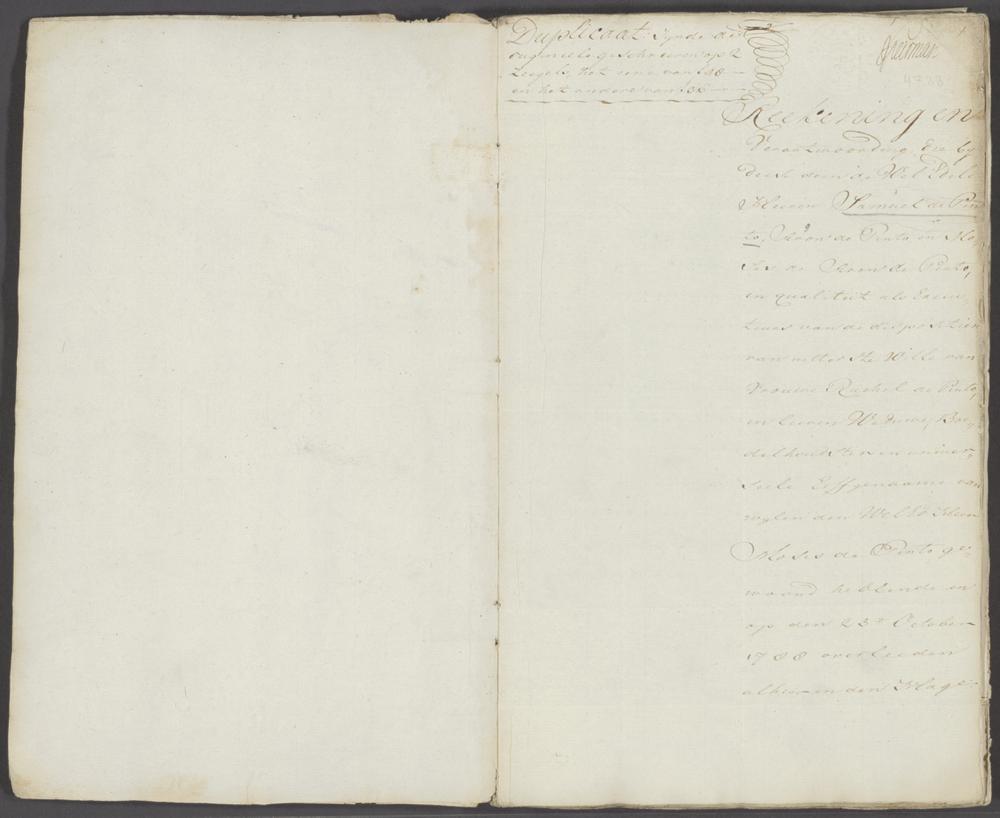 Duplicaat. Zynde de
origineele geschreeven op 2
Zegels, het eene van
en het andere van
4788
Reekening en
Verantwoording, die by
deese doen de Wel Edele
Heeren Samuel de Pin
to, Aron de Pinto en Mo
ses de Aron de Pinto,
in qualiteit als Execu
teurs van de dispositien
van uitterste Wille van
Vrouwe Rachel de Pinto,
in leeven Weduwe, Boe
delhoudster en univer
seele Erffgenaame van
wylen den Wel Ed Heer
Moses de Pinto ge
woond hebbende en
op den 23e October
1788 overleeden
alhier in den Hage